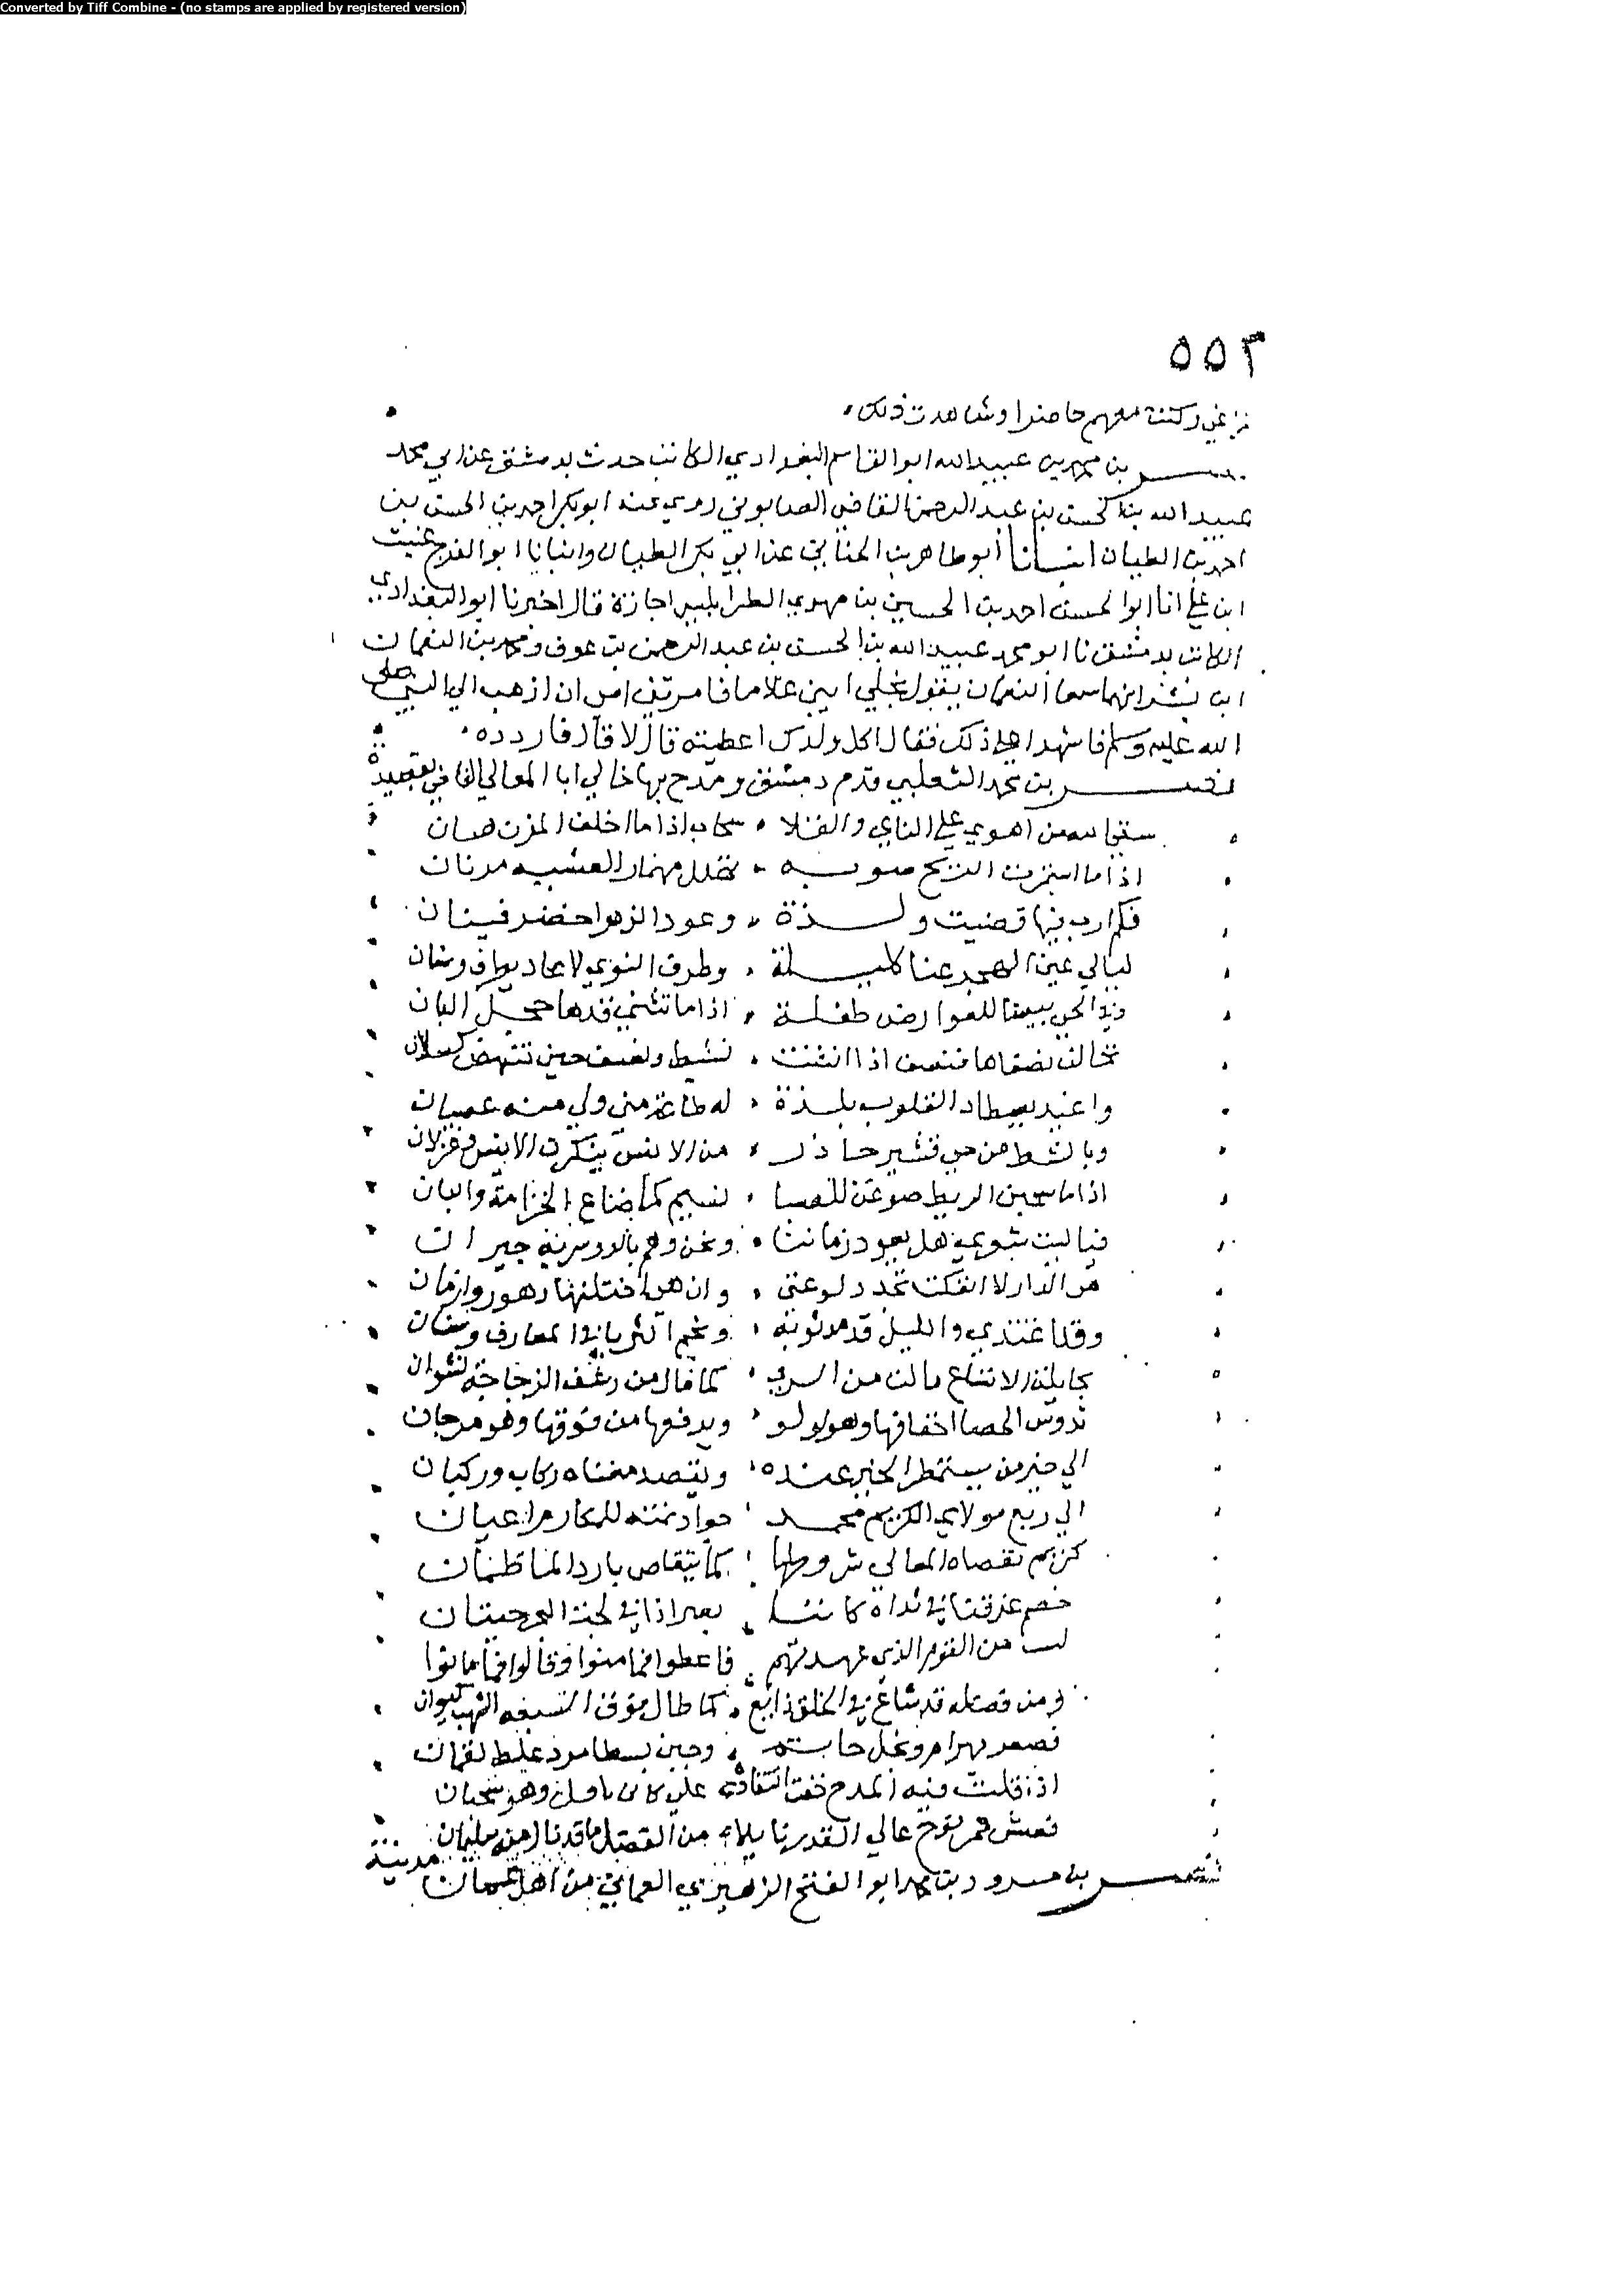 Converted by Tiff Combine - (no stamps are applied by registered version)
٥٥٣
وكنت معهم حاضرا وشاهدت ذلك
بن محمد بن عبيد الله ابو القاسم البغدادي الكاتب حدث بدمشق عن ابي محمد
عبيد الله بن الحسن بن عبد الرحمن القاضي الصابوني روى عنه ابو بكر احمد بن الحسن بن
احمد بن الطيان انبأنا أبو طاهر بن الحنائي عن ابي بكر الطيان وانبانا ابو الفرج غيث
ابن علي انا ابو الحسن احمد بن الحسين بن مهدي الطرابلسي اجازة قال اخبرنا ابو البغدادي
الكاتب بدمشق نا ابو محمد عبيد الله بن الحسن بن عبد الرحمن بن عوف ومحمد بن النعمان
ابن بشير انهما سمعا النعمان يقول نحلي ابي غلاما فامرتني امي ان اذهب الى النبي صلى
الله عليه وسلم فاشهده على ذلك فقال اكل ولدك اعطيته قال لا قال فاردده
نصر بن محمد الثعلبي قدم دمشق ومدح بها خالي ابا المعالي القاضي بقصيدة
من اهوى على الناي والقلا سحاب اذا ما اخلف المزن هتان
اذا ما استمرت الريح صوبه مرنان
فكم ارب فيها قضيت ولذة وعود الزهر اخضر فينان
ليالي عين الهجر عنا كليلة وطرف النوى لا عاد يوافي وسنان
وفي الحي بيضا للعوارض طفلة اذا ما تثنى قدها خجل البان
تخالف نصفاها فنصف اذا انثنت نشيط ونصف حين تنهض كسلان
واغيد يصطاد القلوب بلذة له طاعة مني ولي منه عصيان
وبالشط من حي قشير جاذر من الانس ينكرن الانيس وغزلان
اذا ما سحبن الريط ضوعن للصبا نسيم كما ضاع الخزامة والبان
فيا ليت شعري هل يعود زماننا ونحن وهم جيران
هي الدار لا انفكت تجدد لوعتي وان هي اختلتها دهور وازمان
وقد اغتدي والليل ونجم الثريا في المعارف وسنان
لا تنباع مالت من السرى كما مال من رشف الزجاجة نشوان
تدوس الحصا اخفافها وهو لولو ويدفعها من فوقها وهو مرجان
الى خير من يستمطر الخير عنده ويقصد مغناه ركاب وركبان
الى ربع مولاي الكريم محمد جواد نمته للمكارم اعيان
كريم تقصاه المعالي شروطها كما يتقاضى بارد الما ظمان
خضم غرقنا في نداه كاننا بعبر اذا في لجة البحر حيتان
من القوم الذي عهدتهم فاعطوا فما منوا وقالوا فما مانوا
ومن فضله قد شاع في الخلق ذايع كما طال فوق السبعه الشهب كيوان
بهرام وبخل حاتم وجبن بسطام لقمان
اذا قلت فيه المدح خفت انتقاده على كاني باقل وهو سحبان
فعش عالي القدر من الفضل ما قد نال منه سليمان
نصر بن مسرور بن محمد ابو الفتح الزهيري العماني من اهل عمان مدينة